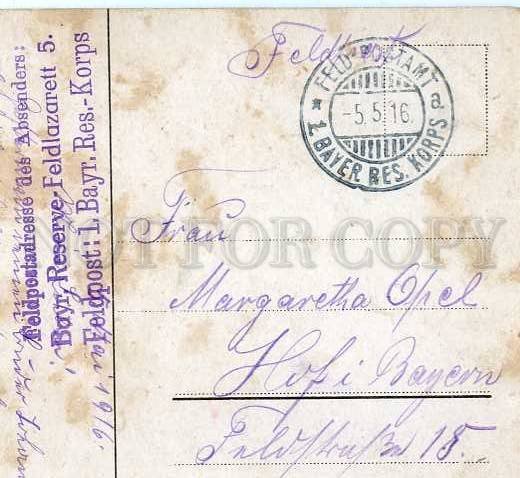 Feldpost
FELD-POSTAMT a
-5.5.16.
* 1. BAYER RES. KORPS
Frau
Margaretha Opel
Hof i Bayern
Feldstraße 15.
Feldpostadresse des Absenders:
Bayr. Reserve-Feldlazarett 5.
Feldpost: I. Bayr. Res.-Korps
Mai 1916.
NOT FOR COPY